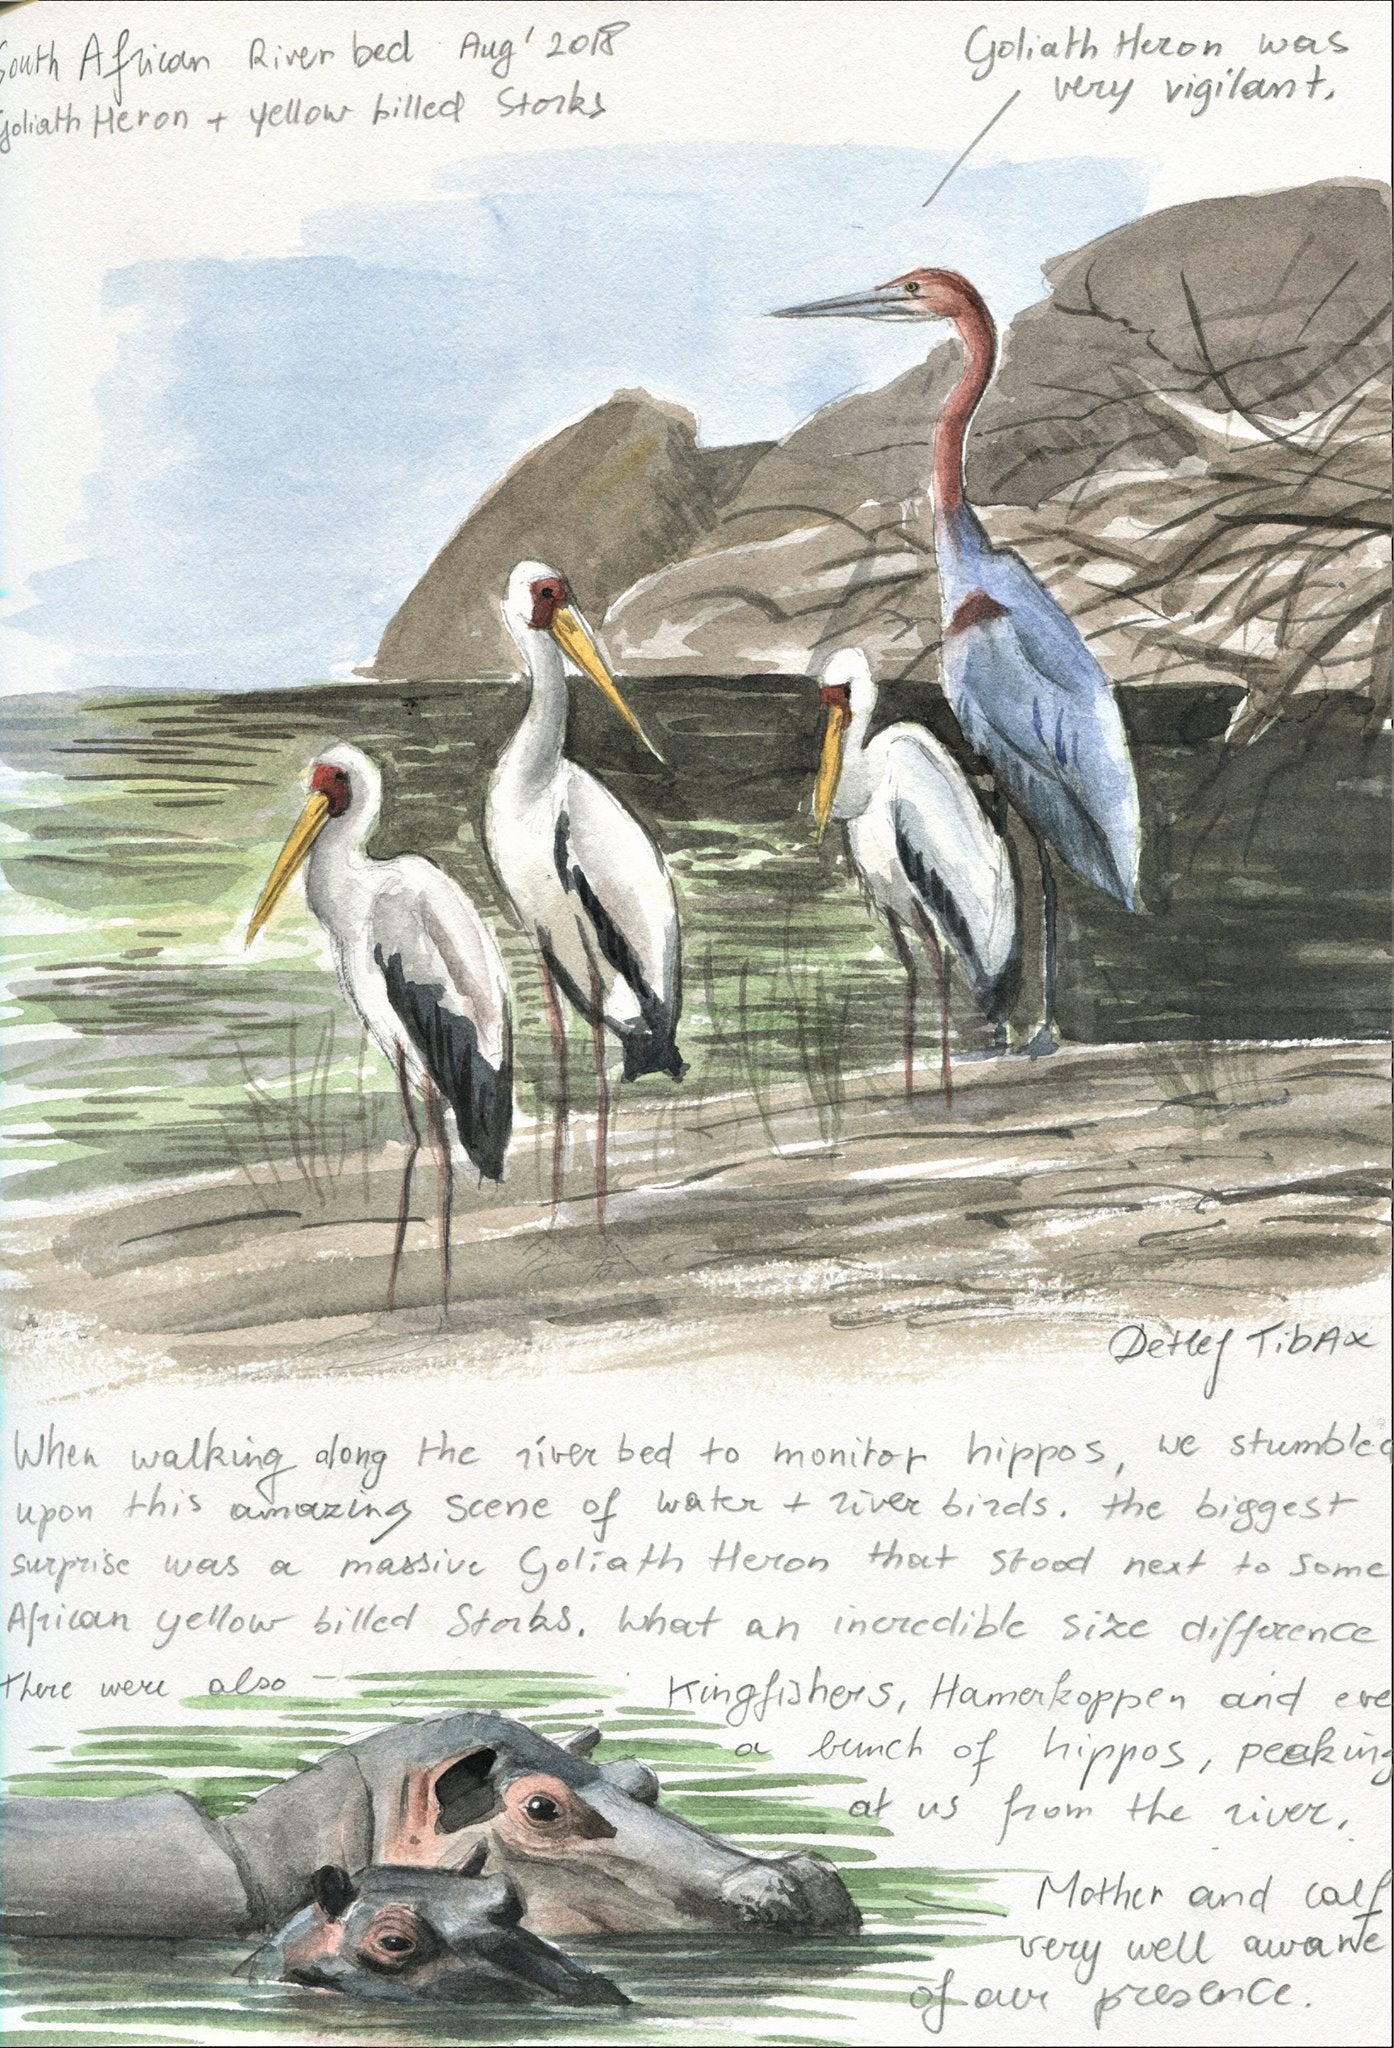 South African River bed Aug' 2018
Goliath Heron + yellow billed Storks
Goliath Heron was
very vigilant.
Detlef TibAx
When walking along the river bed to monitor hippos, we stumbled
upon this amazing scene of water + river birds. the biggest
surprise was a massive Goliath Heron that stood next to some
African yellow billed Storks. What an incredible size difference
there were also – Kingfishers, Hamerkoppen and eve
a bunch of hippos, peaking
at us from the river.
Mother and calf
very well aware
of our presence.